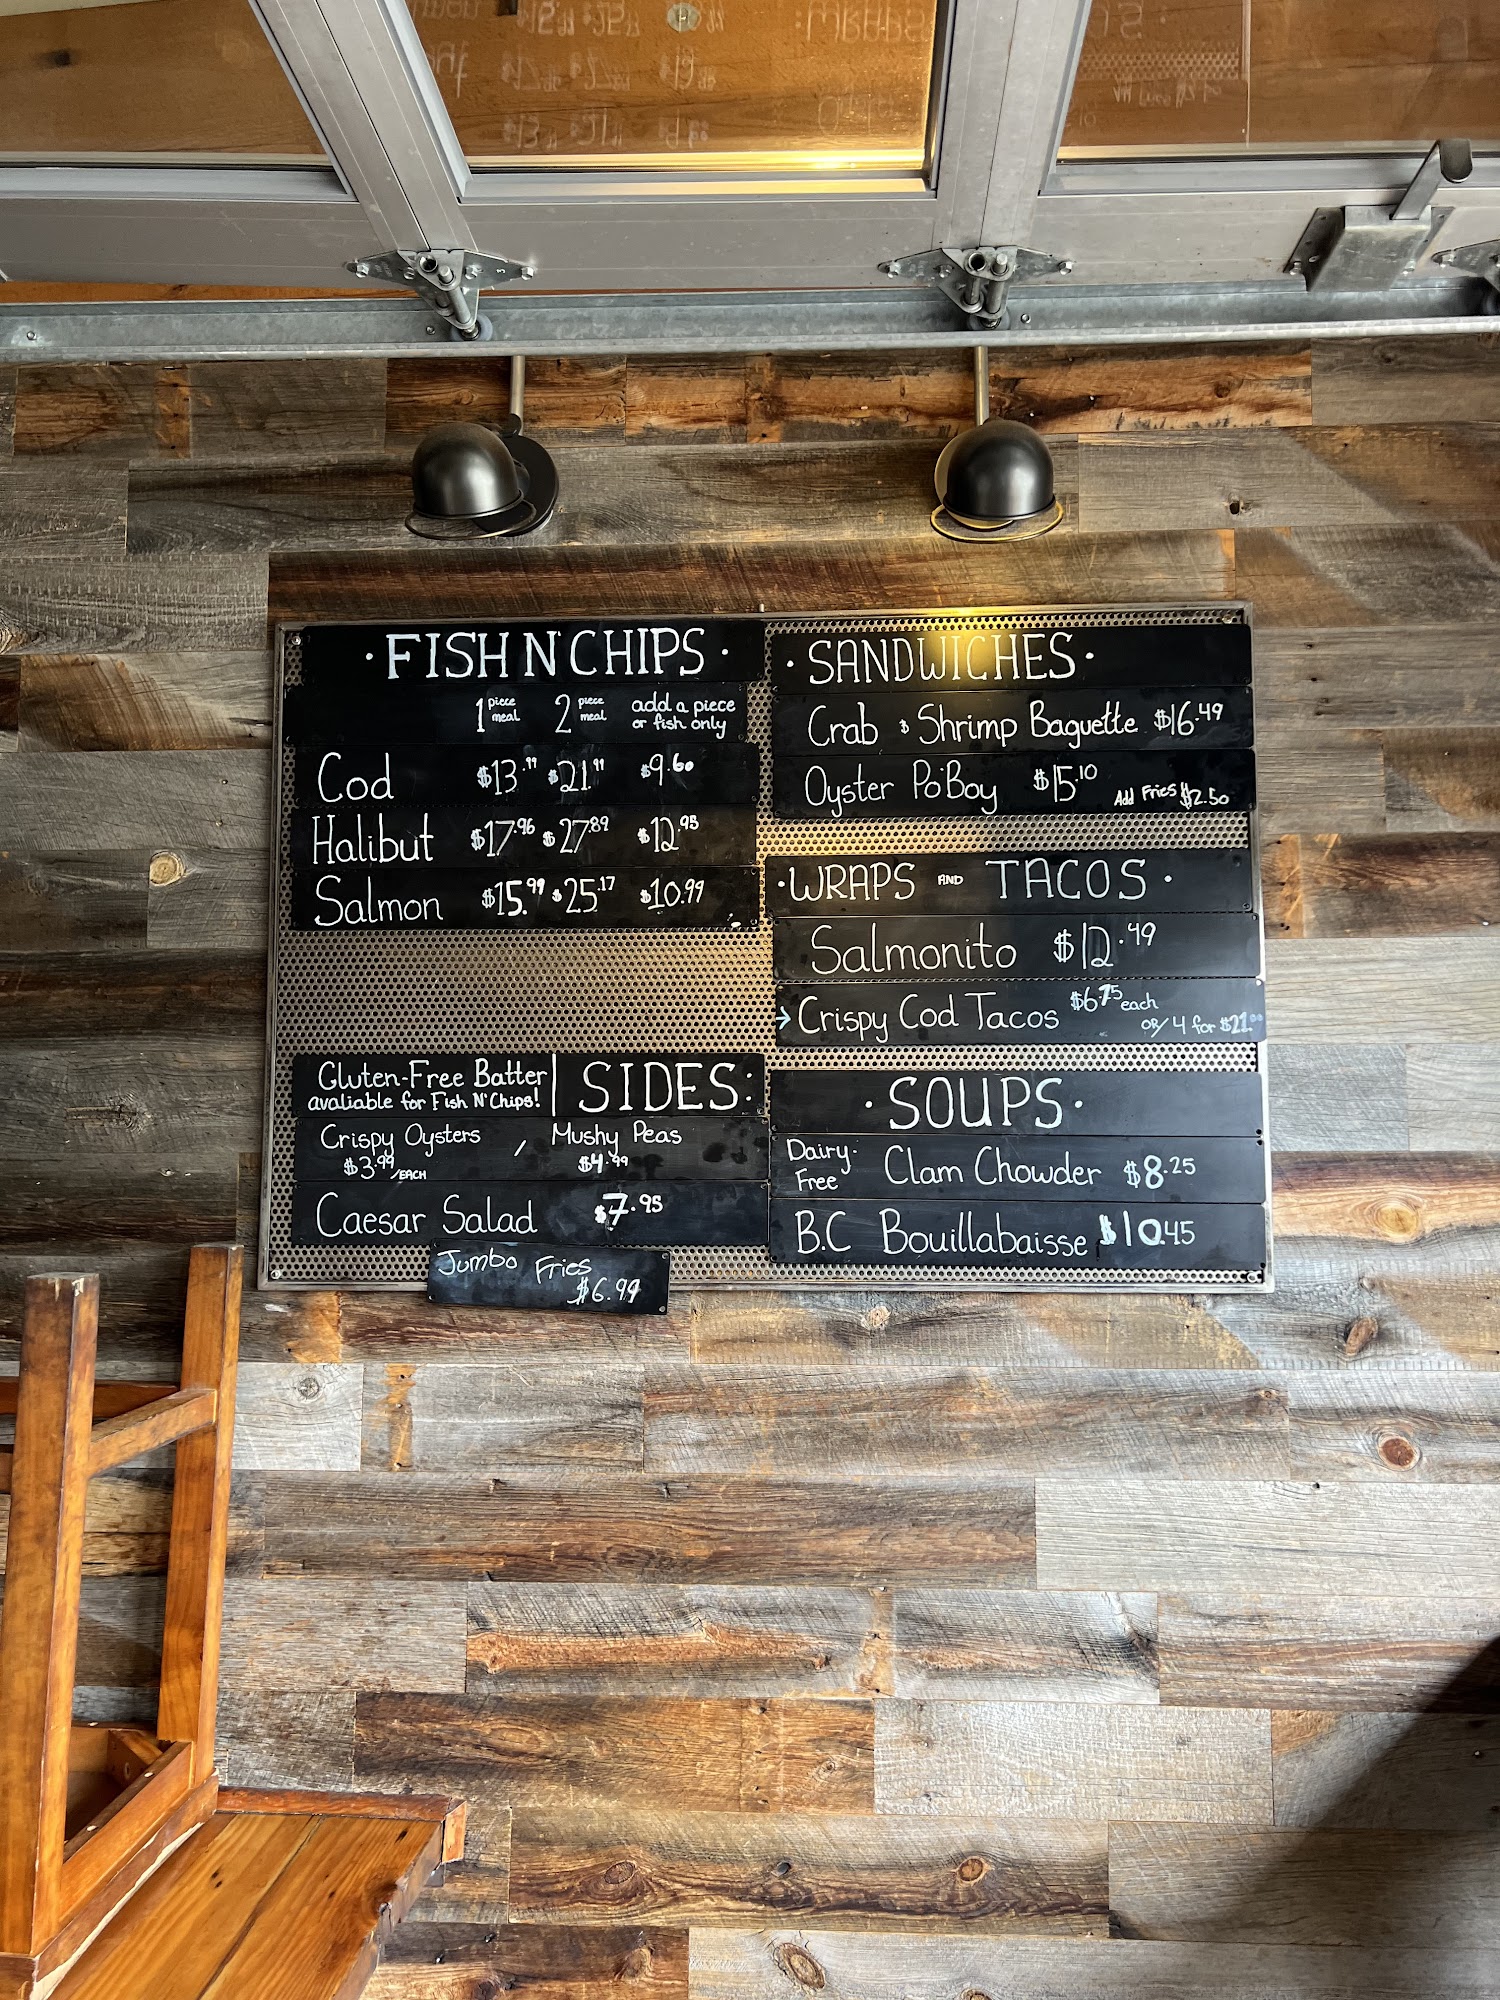 · FISH N' CHIPS ·
1 piece meal 2 piece meal add a piece or fish only
Cod $13.99 $21.99 $9.60
Halibut $17.96 $27.89 $12.95
Salmon $15.99 $25.17 $10.99
Gluten-Free Batter
avaliable for Fish N' Chips!
SIDES:
Crispy Oysters / Mushy Peas
$3.99/EACH $4.99
Caesar Salad $7.95
Jumbo Fries
$6.99
· SANDWICHES ·
Crab & Shrimp Baguette $16.49
Oyster Po'Boy $15.10 Add Fries $2.50
· WRAPS AND TACOS ·
Salmonito $12.49
→ Crispy Cod Tacos $6.75 each
OR/ 4 for $21.00
· SOUPS ·
Dairy-Free Clam Chowder $8.25
B.C Bouillabaisse $10.45